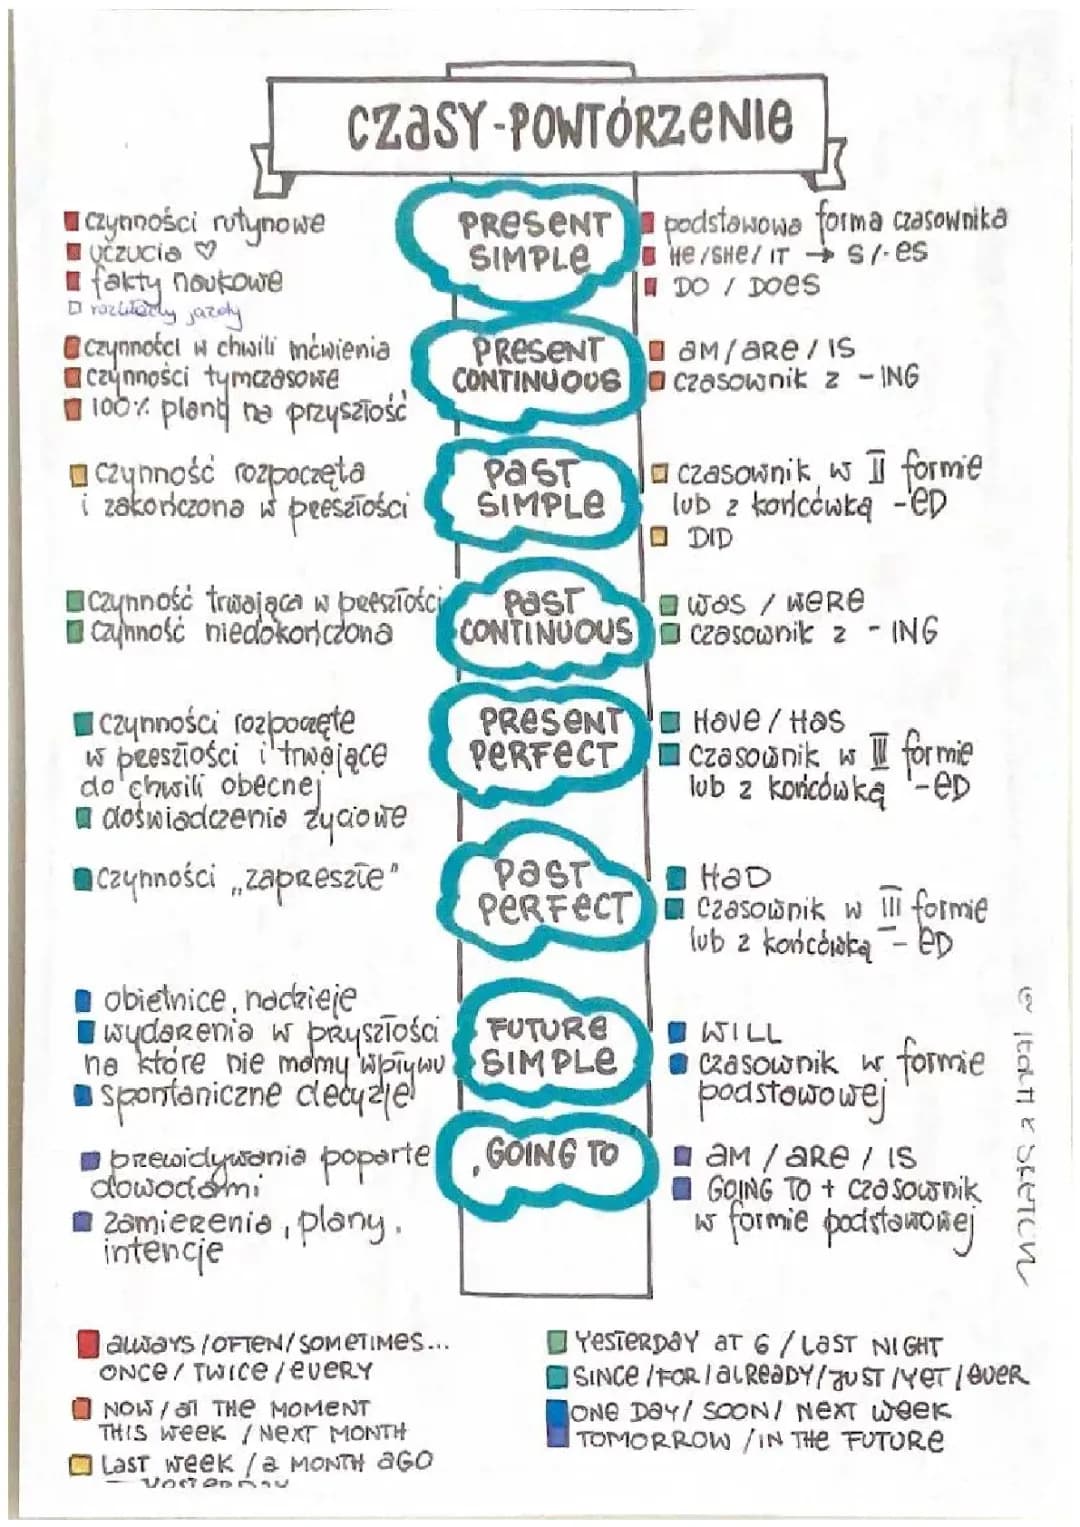 CZASY-POWTÓRZENIE
czynności rutynowe
uczucia ♡
fakty naukowe
rozkłady jazdy
PRESENT
SIMPLE
podstawowa forma czasownika
HE/SHE/IT → S/-ES
DO / DOES
czynności w chwili mówienia
czynności tymczasowe
100% plany na przyszłość
PRESENT
CONTINUOUS
AM/ARE/IS
czasownik z -ING
czynność rozpoczęta
i zakończona w przeszłości
PAST
SIMPLE
czasownik w II formie
lub z końcówką -ED
DID
czynność trwająca w przeszłości
czynność niedokończona
PAST
CONTINUOUS
WAS / WERE
czasownik z -ING
czynności rozpoczęte
w przeszłości i trwające
do chwili obecnej
doświadczenia życiowe
PRESENT
PERFECT
HAVE/HAS
czasownik w III formie
lub z końcówką -ED
czynności „zaprzeszłe"
PAST
PERFECT
HAD
czasownik w III formie
lub z końcówką -ED
obietnice, nadzieje
wydarzenia w przyszłości
na które nie mamy wpływu
spontaniczne decyzje
FUTURE
SIMPLE
WILL
czasownik w formie
podstawowej
przewidywania poparte
dowodami
zamierzenia, plany,
intencje
GOING TO
AM / ARE / IS
GOING TO + czasownik
w formie podstawowej
ALWAYS/OFTEN/SOMETIMES...
ONCE/TWICE/EVERY
NOW/AT THE MOMENT
THIS WEEK / NEXT MONTH
LAST WEEK / A MONTH AGO
YESTERDAY
YESTERDAY AT 6 / LAST NIGHT
SINCE/FOR/ALREADY/JUST/YET/EVER
ONE DAY/ SOON/ NEXT WEEK
TOMORROW /IN THE FUTURE